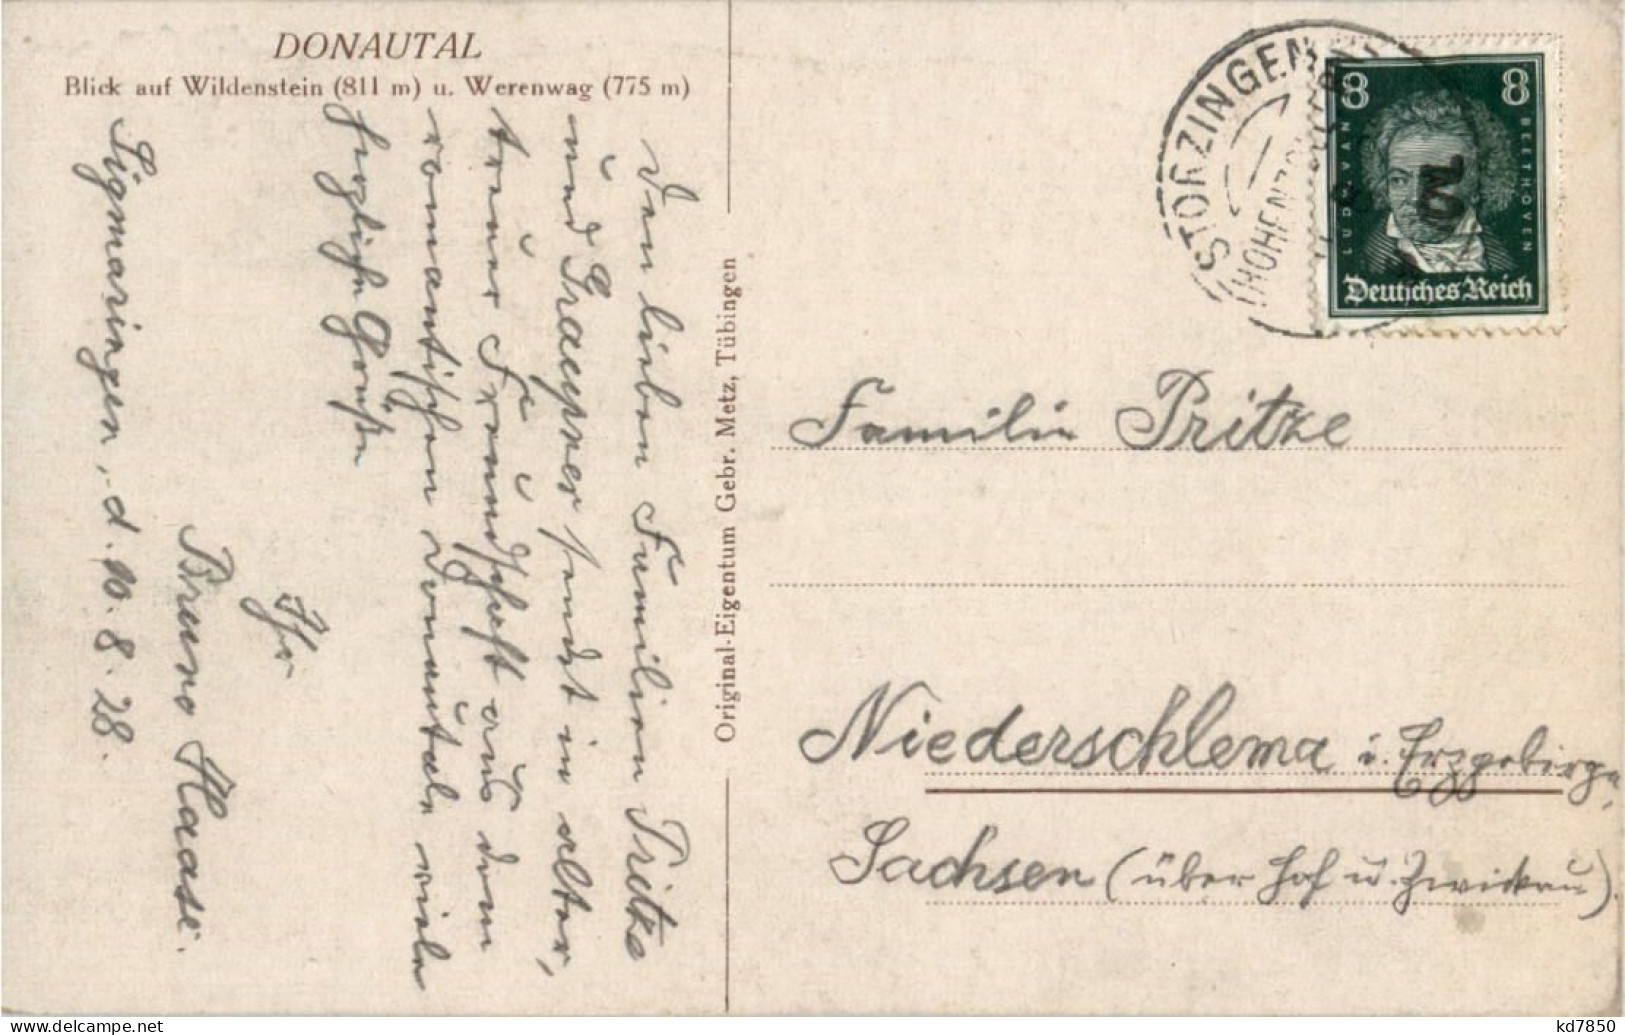 DONAUTAL
Blick auf Wildenstein (811 m) u. Werenwag (775 m)
Den lieben Familien Pritzke
und Graepner sendet in alter,
treuer Freundschaft aus dem
romantischen Donautale viele
herzliche Grüße
Ihr
Bruno Haase.
Sigmaringen, d. 10. 8. 28.
Original-Eigentum Gebr. Metz, Tübingen
STORZINGEN
(HOHENZ
8 8
LUDW. VAN BEETHOVEN
Deutsches Reich
Familie Pritzke
Niederschlema i. Erzgebirge,
Sachsen (über Hof u. Zwickau).
kd7850